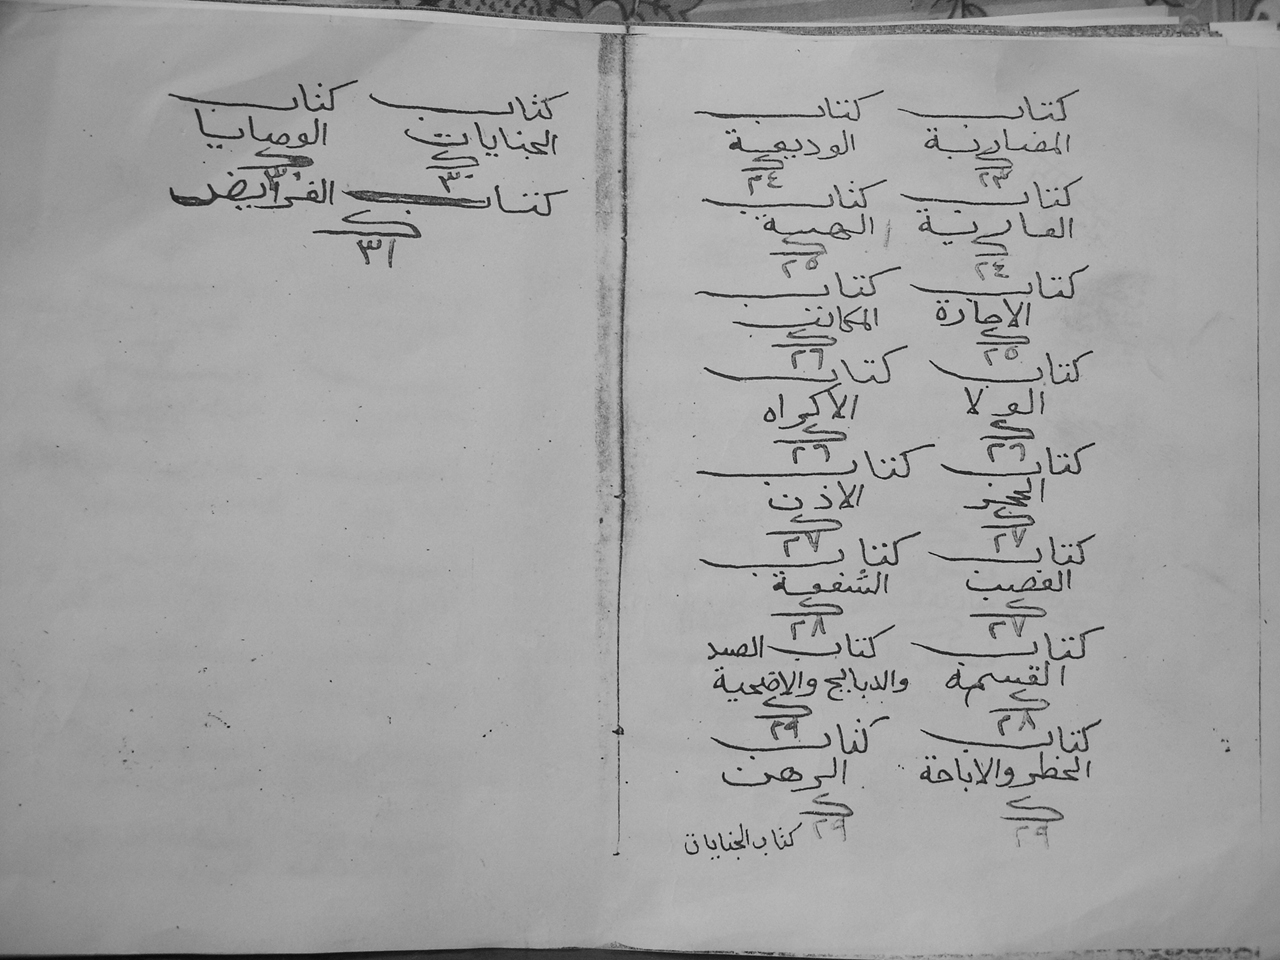 كتاب كتاب
المضاربة الوديعة
٢٣ ٢٤
كتاب كتاب
العارية الهبة
٢٤ ٢٥
كتاب كتاب
الاجارة المكاتب
٢٥ ٢٦
كتاب كتاب
الولا الاكراه
٢٦ ٢٦
كتاب كتاب
الاذن
٢٧ ٢٧
كتاب كتاب
الغصب الشفعة
٢٧ ٢٨
كتاب كتاب الصيد
القسمة والذبايح والاضحية
٢٨ ٢٩
كتاب كتاب
الحظر والاباحة الرهن
٢٩ ٢٩
كتاب الجنايات
كتاب كتاب
الجنايات الوصايا
٣٠
كتاب الفرايض
٣١